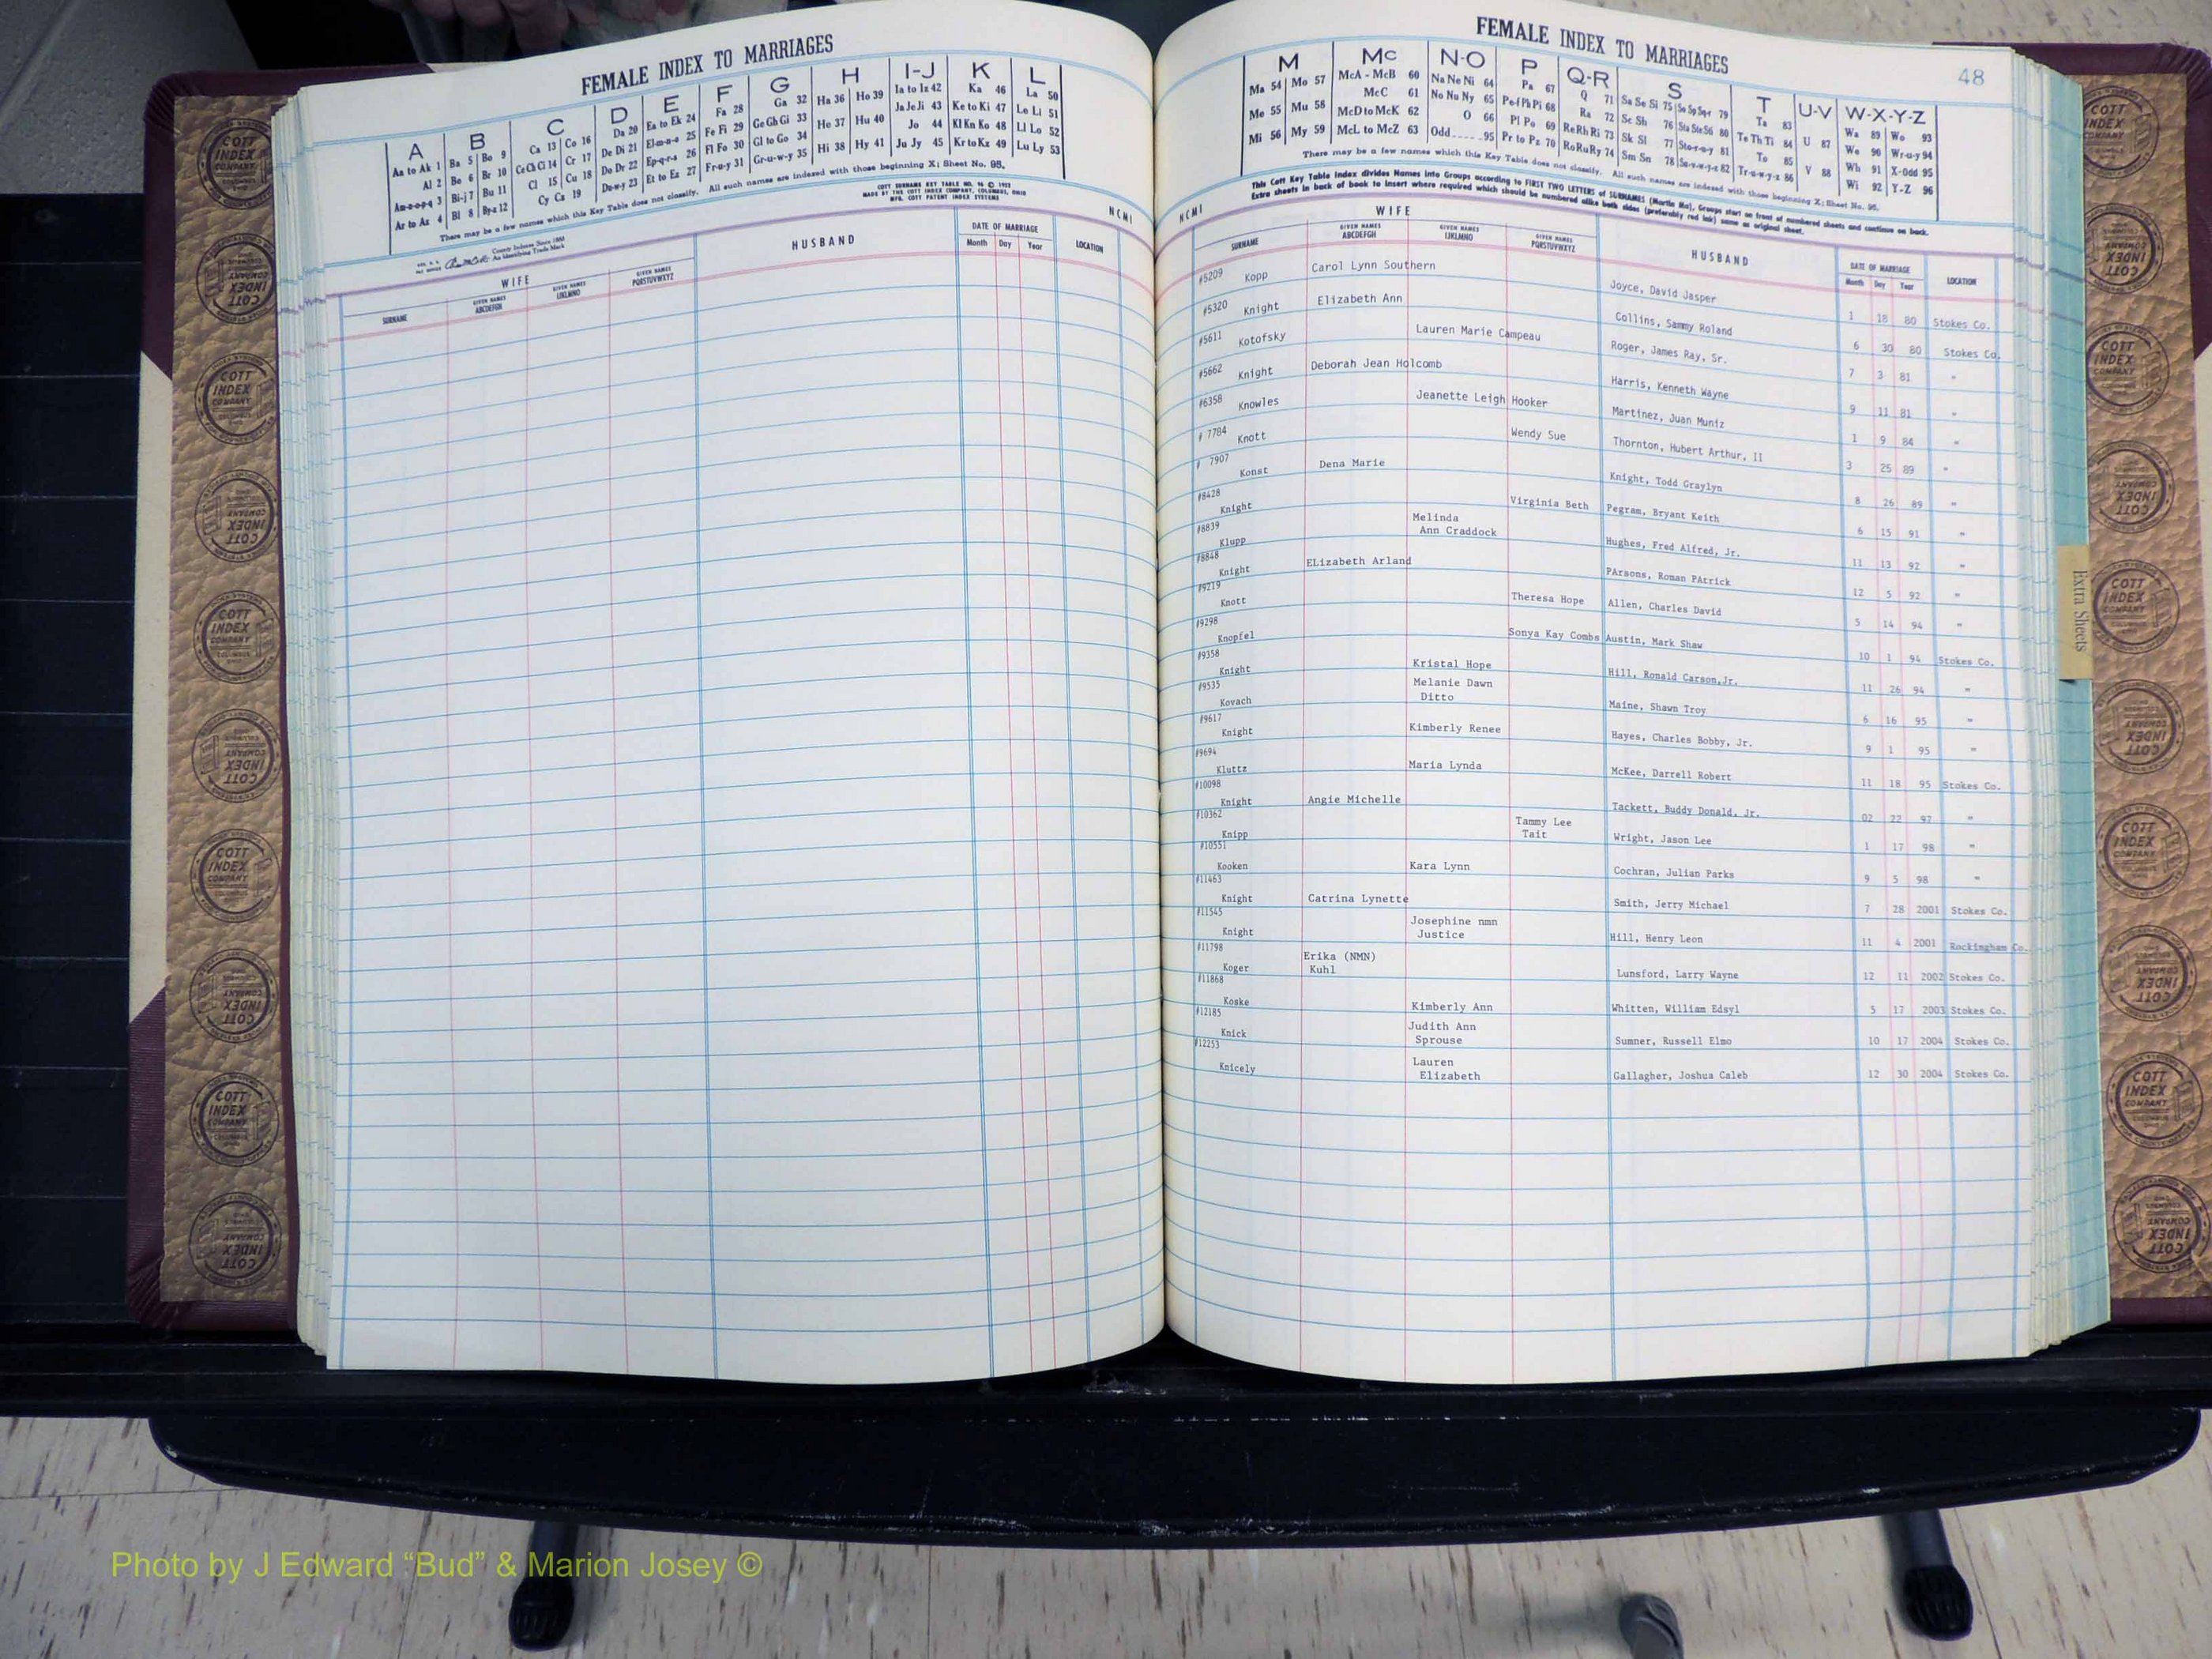 FEMALE INDEX TO MARRIAGES
A B C D E F G H I-J K L
Aa to Ak 1 Ba 5 Bo 9 Ca 13 Co 16 Da 20 Ea to Ek 24 Fa 28 Ga 32 Ha 36 Ho 39 Ia to Iz 42 Ka 46 La 50
Al 2 Be 6 Br 10 Ce Ch Ci 14 Cr 17 De Di 21 El-m-n-o 25 Fe Fi 29 Ge Gh Gi 33 He 37 Hu 40 Ja Je Ji 43 Ke to Ki 47 Le Li 51
Am-n-o-p-q 3 Bi-j 7 Bu 11 Cl 15 Cu 18 Do Dr 22 Ep-q-r-s 26 Fl Fo 30 Gl to Go 34 Hi 38 Hy 41 Jo 44 Kl Kn Ko 48 Ll Lo 52
Ar to Az 4 Bl 8 By-z 12 Cy Cz 19 Du-w-y 23 Et to Ez 27 Fr-u-y 31 Gr-u-w-y 35 Ju Jy 45 Kr to Kz 49 Lu Ly 53
There may be a few names which this Key Table does not classify. All such names are indexed with those beginning X; Sheet No. 95.
COTT SURNAME KEY TABLE NO. 96 © 1953
MADE BY THE COTT INDEX COMPANY, COLUMBUS, OHIO
MFG. COTT PATENT INDEX SYSTEMS
County Indexes Since 1888
An Identifying Trade Mark
NCMI
WIFE HUSBAND DATE OF MARRIAGE LOCATION
SURNAME GIVEN NAMES ABCDEFGH GIVEN NAMES IJKLMNO GIVEN NAMES PQRSTUVWXYZ Month Day Year
FEMALE INDEX TO MARRIAGES
48
M Mc N-O P Q-R S T U-V W-X-Y-Z
Ma 54 Mo 57 McA - McB 60 Na Ne Ni 64 Pa 67 Q 71 Sa Se Si 75 So Sp Sq-r 79 Ta 83 U 87 Wa 89 Wo 93
Me 55 Mu 58 McC 61 No Nu Ny 65 Pe-f Ph Pi 68 Ra 72 Sc Sh 76 Sta Ste Sti 80 Te Th Ti 84 V 88 We 90 Wr-u-y 94
Mi 56 My 59 McD to McK 62 O 66 Pl Po 69 Re Rh Ri 73 Sk Sl 77 Sto-r-u-y 81 To 85 Wh 91 X-Odd 95
McL to McZ 63 Odd 95 Pr to Pz 70 Ro Ru Ry 74 Sm Sn 78 Su-v-w-y-z 82 Tr-u-w-y-z 86 Wi 92 Y-Z 96
There may be a few names which this Key Table does not classify. All such names are indexed with those beginning X; Sheet No. 95.
This Cott Key Table Index divides Names into Groups according to FIRST TWO LETTERS of SURNAMES (Martin Ma), Groups start on front of numbered sheets and continue on back.
Extra sheets in back of book to insert where required which should be numbered alike both sides (preferably red ink) same as original sheet.
NCMI
WIFE HUSBAND DATE OF MARRIAGE LOCATION
SURNAME GIVEN NAMES ABCDEFGH GIVEN NAMES IJKLMNO GIVEN NAMES PQRSTUVWXYZ Month Day Year
#5209 Kopp Carol Lynn Southern Joyce, David Jasper 1 18 80 Stokes Co.
#5320 Knight Elizabeth Ann Collins, Sammy Roland 6 30 80 Stokes Co.
#5611 Kotofsky Lauren Marie Campeau Roger, James Ray, Sr. 7 3 81 "
#5662 Knight Deborah Jean Holcomb Harris, Kenneth Wayne 9 11 81 "
#6358 Knowles Jeanette Leigh Hooker Martinez, Juan Muniz 1 9 84 "
# 7784 Knott Wendy Sue Thornton, Hubert Arthur, II 3 25 89 "
# 7907 Konst Dena Marie Knight, Todd Graylyn 8 26 89 "
#8428 Knight Virginia Beth Pegram, Bryant Keith 6 15 91 "
#8839 Klupp Melinda Ann Craddock Hughes, Fred Alfred, Jr. 11 13 92 "
#8848 Knight ELizabeth Arland PArsons, Roman PAtrick 12 5 92 "
#9219 Knott Theresa Hope Allen, Charles David 5 14 94 "
#9298 Knopfel Sonya Kay Combs Austin, Mark Shaw 10 1 94 Stokes Co.
#9358 Knight Kristal Hope Hill, Ronald Carson,Jr. 11 26 94 "
#9535 Kovach Melanie Dawn Ditto Maine, Shawn Troy 6 16 95 "
#9617 Knight Kimberly Renee Hayes, Charles Bobby, Jr. 9 1 95 "
#9694 Kluttz Maria Lynda McKee, Darrell Robert 11 18 95 Stokes Co.
#10098 Knight Angie Michelle Tackett, Buddy Donald, Jr. 02 22 97 "
#10362 Knipp Tammy Lee Tait Wright, Jason Lee 1 17 98 "
#10551 Kooken Kara Lynn Cochran, Julian Parks 9 5 98 "
#11463 Knight Catrina Lynette Smith, Jerry Michael 7 28 2001 Stokes Co.
#11545 Knight Josephine nmn Justice Hill, Henry Leon 11 4 2001 Rockingham Co.
#11798 Koger Erika (NMN) Kuhl Lunsford, Larry Wayne 12 11 2002 Stokes Co.
#11868 Koske Kimberly Ann Whitten, William Edsyl 5 17 2003 Stokes Co.
#12185 Knick Judith Ann Sprouse Sumner, Russell Elmo 10 17 2004 Stokes Co.
#12253 Knicely Lauren Elizabeth Gallagher, Joshua Caleb 12 30 2004 Stokes Co.
Extra Sheets
COTT INDEX COMPANY
Photo by J Edward “Bud” & Marion Josey ©